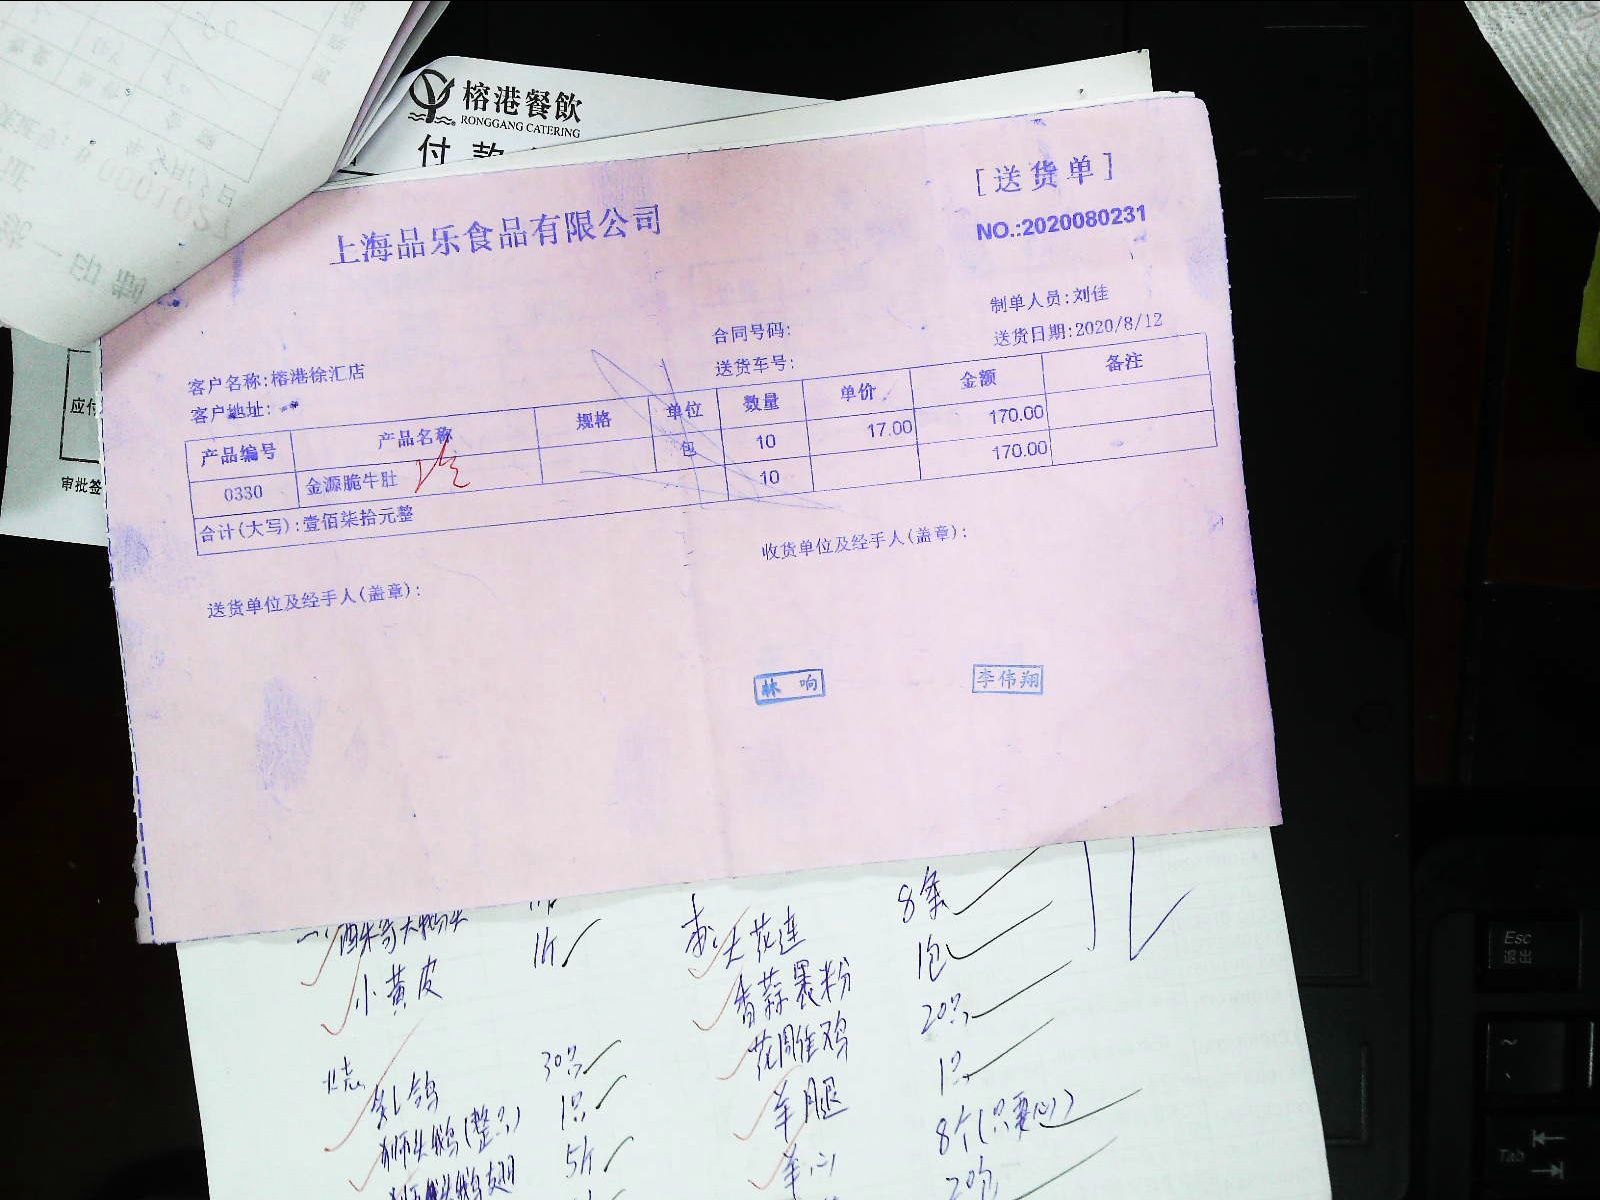 榕港餐飲
RONGGANG CATERING
付款
[送货单]
上海品乐食品有限公司
NO.:2020080231
制单人员:刘佳
合同号码:
送货日期:2020/8/12
客户名称:榕港徐汇店
送货车号:
客户地址:
产品编号 产品名称 规格 单位 数量 单价 金额 备注
0330 金源脆牛肚 包 10 17.00 170.00
10 170.00
合计(大写):壹佰柒拾元整
应付
审批签
送货单位及经手人(盖章):
收货单位及经手人(盖章):
林响
李伟翔
8条
1斤
大花莲
1包
小黄皮
香蒜裹粉
20只
花周雀鸡
30只
1只
乳鸽
羊腿
1只
8个(只要心)
狮头鹅(整只)
5斤
羊心
狮头鹅翅
20包
Esc
退出
Tab